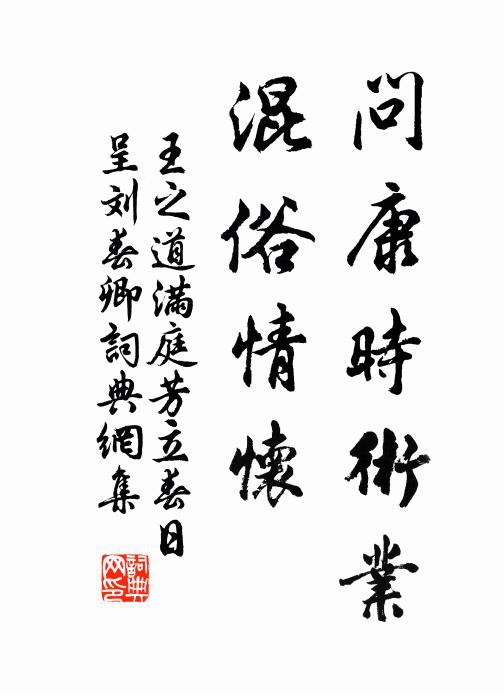 問康時術業
混俗情懷
王之道滿庭芳立春日
呈刘春卿詞典網集
詞典网印